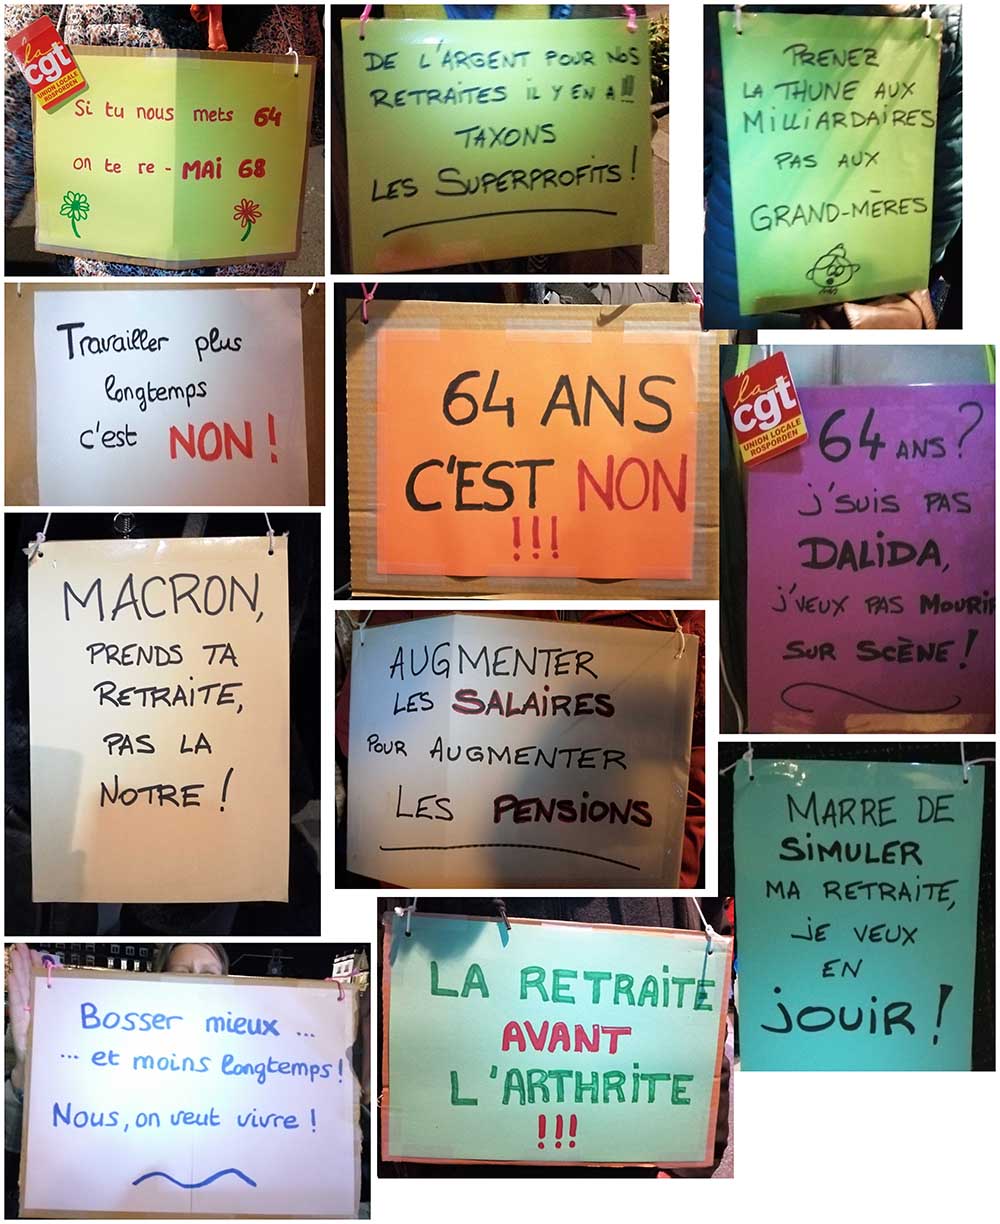 la
cgt
UNION LOCALE
ROSPORDEN
Si tu nous mets 64
on te re - MAI 68
DE L'ARGENT POUR NOS
RETRAITES iL Y EN A !!!
TAXONS
LES SUPERPROFITS !
PRENEZ
LA THUNE AUX
MILLIARDAIRES
PAS AUX
GRAND-MÈRES
Travailler plus
longtemps
c'est NON !
64 ANS
C'EST NON
!!!
la
cgt
UNION LOCALE
ROSPORDEN
64 ANS ?
J'SUIS PAS
DALiDA,
J'VEUX PAS MOURIR
SUR SCÈNE !
MACRON,
PRENDS TA
RETRAITE,
PAS LA
NOTRE !
AUGMENTER
LES SALAiRES
POUR AUGMENTER
LES PENSIONS
MARRE DE
SiMULER
MA RETRAITE,
JE VEUX
EN
JOUiR !
Bosser mieux ...
... et moins longtemps !
Nous, on veut vivre !
LA RETRAiTE
AVANT
L'ARTHRiTE
!!!